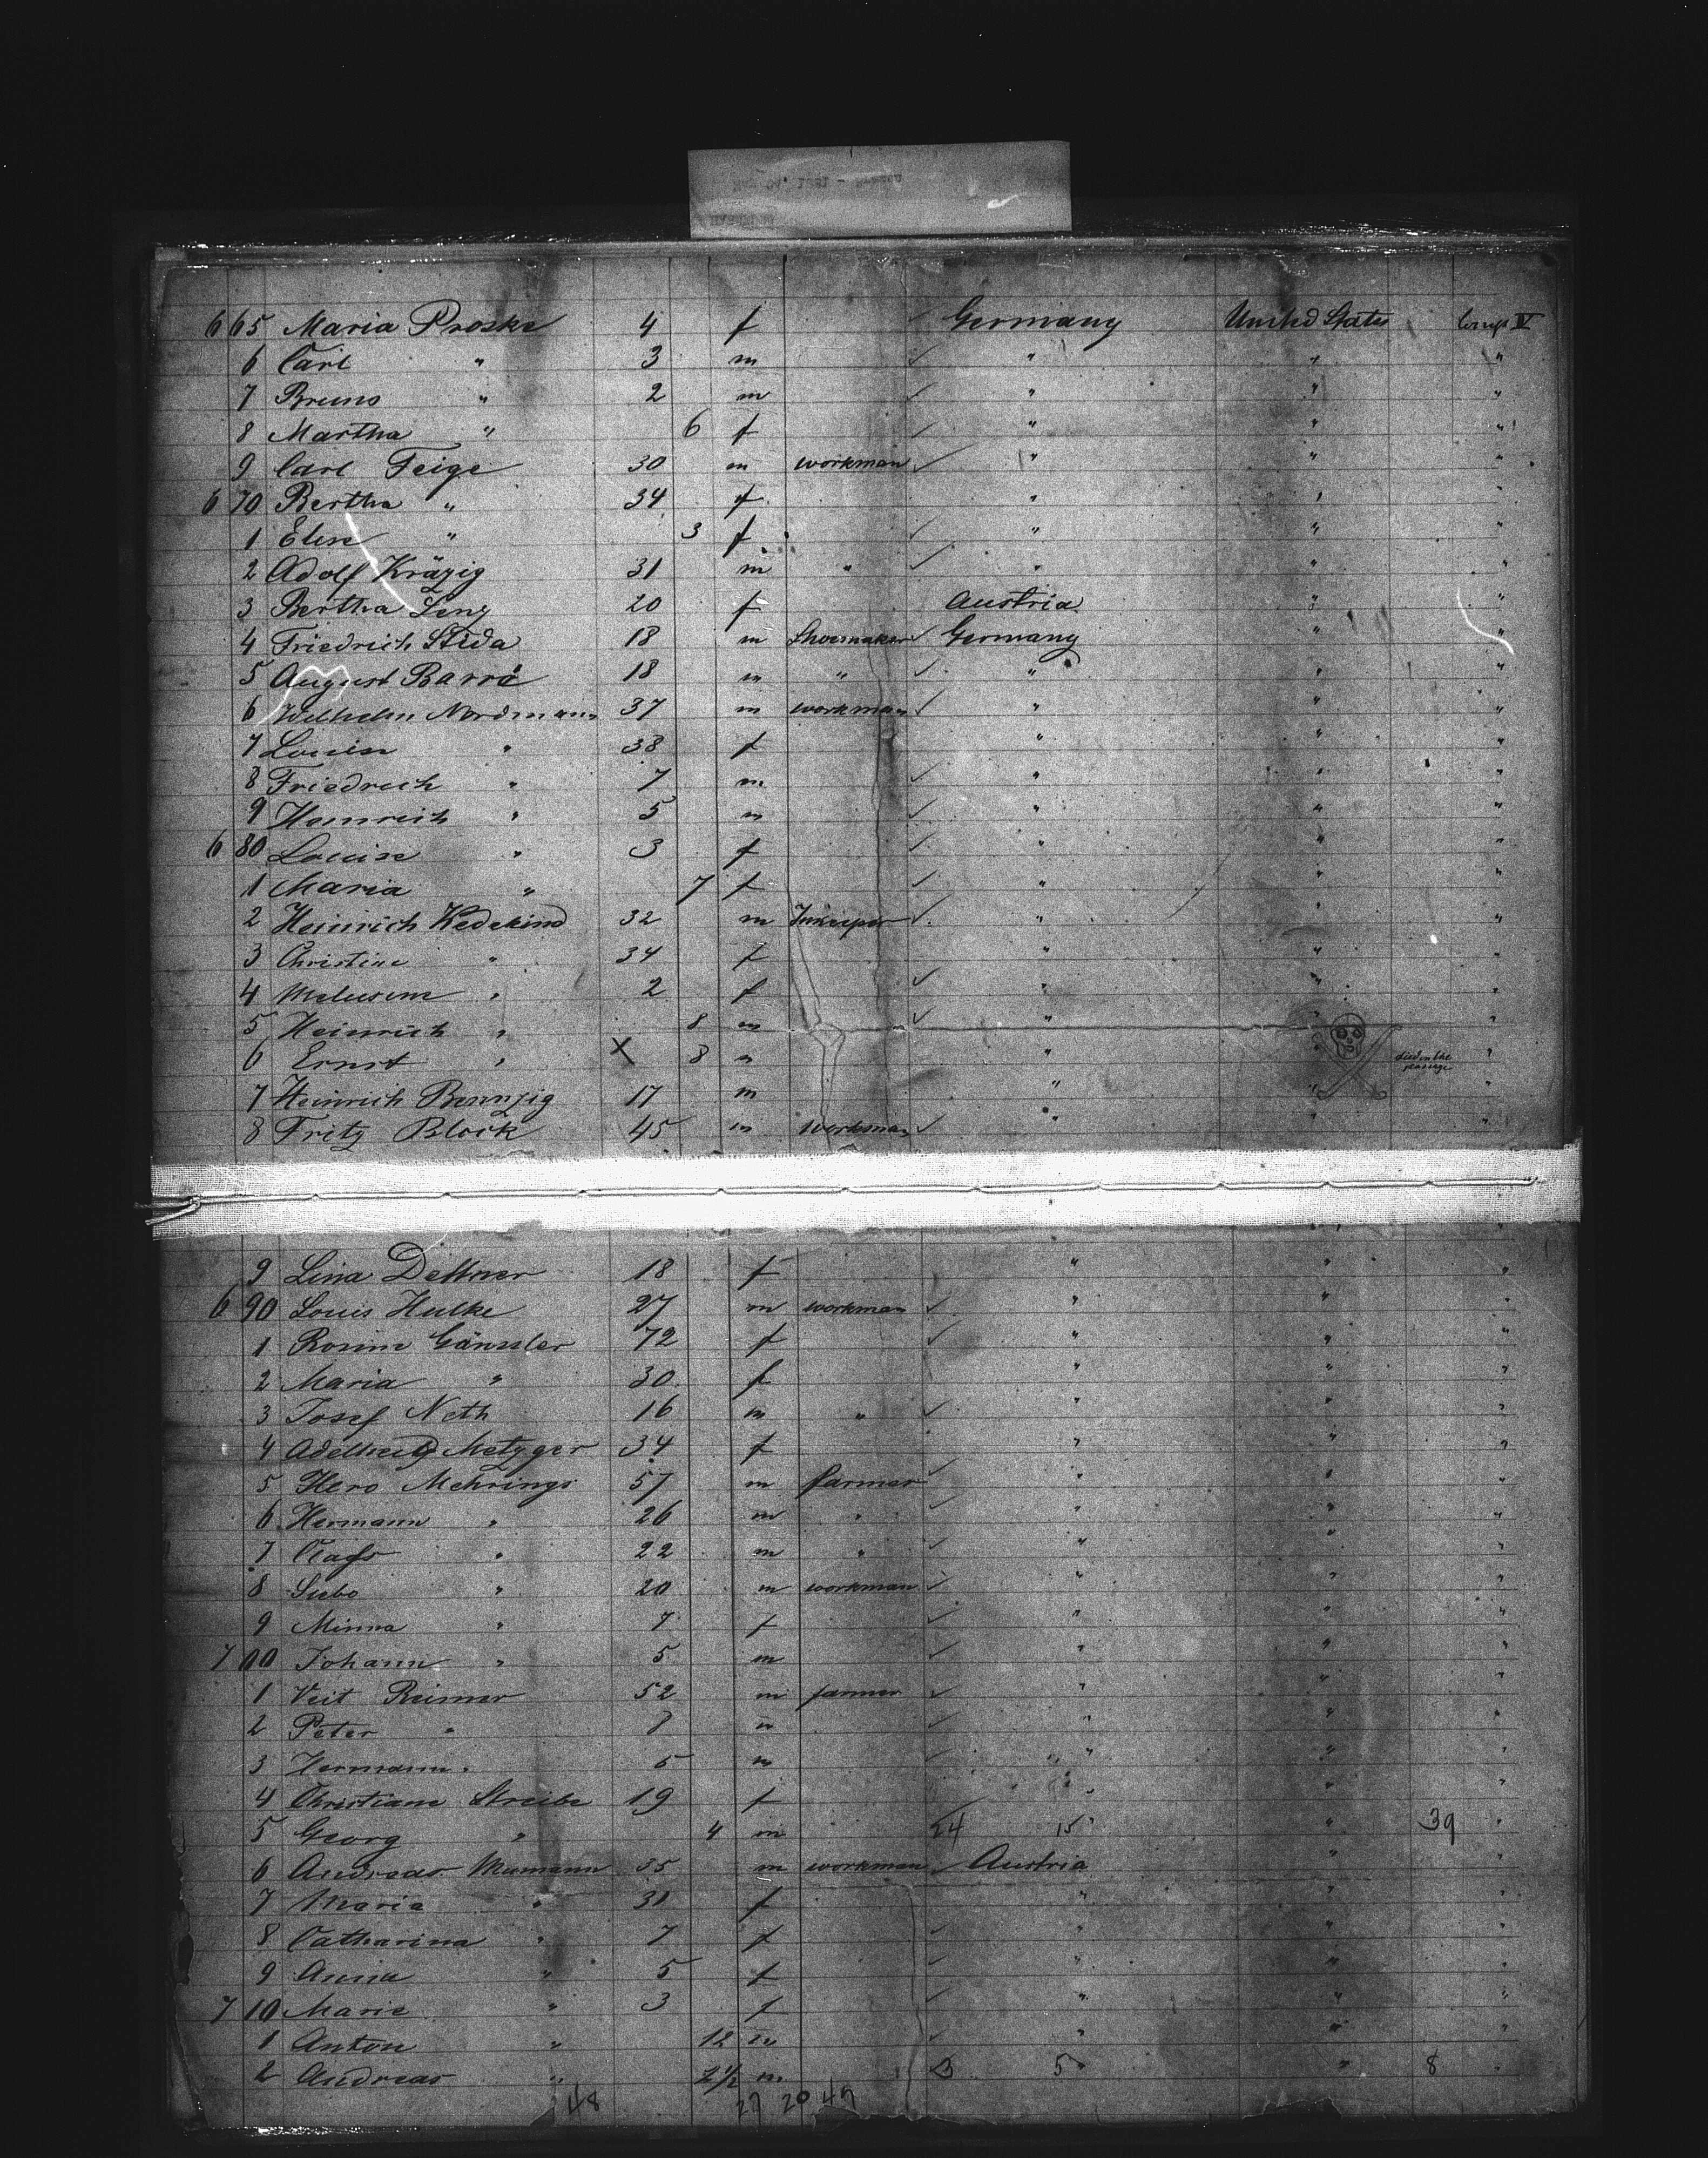 665 Maria Proske 4 f Germany United States Comp. IV
6 Carl " 3 m ✓ " " "
7 Bruno " 2 m ✓ " " "
8 Martha " 6 f ✓ " " "
9 Carl Feige 30 m workman ✓ " " "
670 Bertha " 34 f " " "
1 Elise " 3 f ✓ " " "
2 Adolf Kräzig 31 m " ✓ " " "
3 Bertha Lenz 20 f Austria " "
4 Friedrich Stida 18 m Shoemaker ✓ Germany " "
5 August Barré 18 m " ✓ " " "
6 Wilhelm Nordmann 37 m workman ✓ " " "
7 Louise " 38 f " " "
8 Friedrich " 7 m ✓ " " "
9 Heinrich " 5 m ✓ " " "
680 Louise " 3 f ✓ " " "
1 Maria " 7 f ✓ " " "
2 Heinrich Wedekind 32 m Inkeeper ✓ " " "
3 Christine " 34 f " " "
4 " 2 f ✓ " " "
5 Heinrich " 8 m ✓ " " "
6 Ernst " X 8 m " " died on the passage "
7 Heinrich 17 m " " "
8 Fritz Block 45 m workman ✓ " " "
9 Lina Dettmer 18 f " " "
690 Louis Hulke 27 m workman ✓ " " "
1 Rosine Gänssler 72 f ✓ " " "
2 Maria " 30 f " " "
3 Josef Neth 16 m " ✓ " " "
4 Adelheid Metzger 34 f " " "
5 Hero Mehrings 57 m farmer ✓ " " "
6 Hermann " 26 m " ✓ " " "
7 " 22 m " ✓ " " "
8 " 20 m workman ✓ " " "
9 Minna " 7 f ✓ " " "
700 Johann " 5 m ✓ " " "
1 Veit Reimer 52 m farmer ✓ " " "
2 Peter " 8 m ✓ " " "
3 Hermann " 5 m ✓ " " "
4 Christiane Streibe 19 f " " "
5 Georg " 4 m 24 15 " 39 "
6 Andreas 35 m workman ✓ Austria " "
7 Maria " 31 f " " "
8 Catharina " 7 f ✓ " " "
9 Anna " 5 f ✓ " " "
710 Marie " 3 f ✓ " " "
1 Anton " 12 m ✓ " " "
2 Andreas " 2½ m 3 5 " 8 "
48 27 20 47